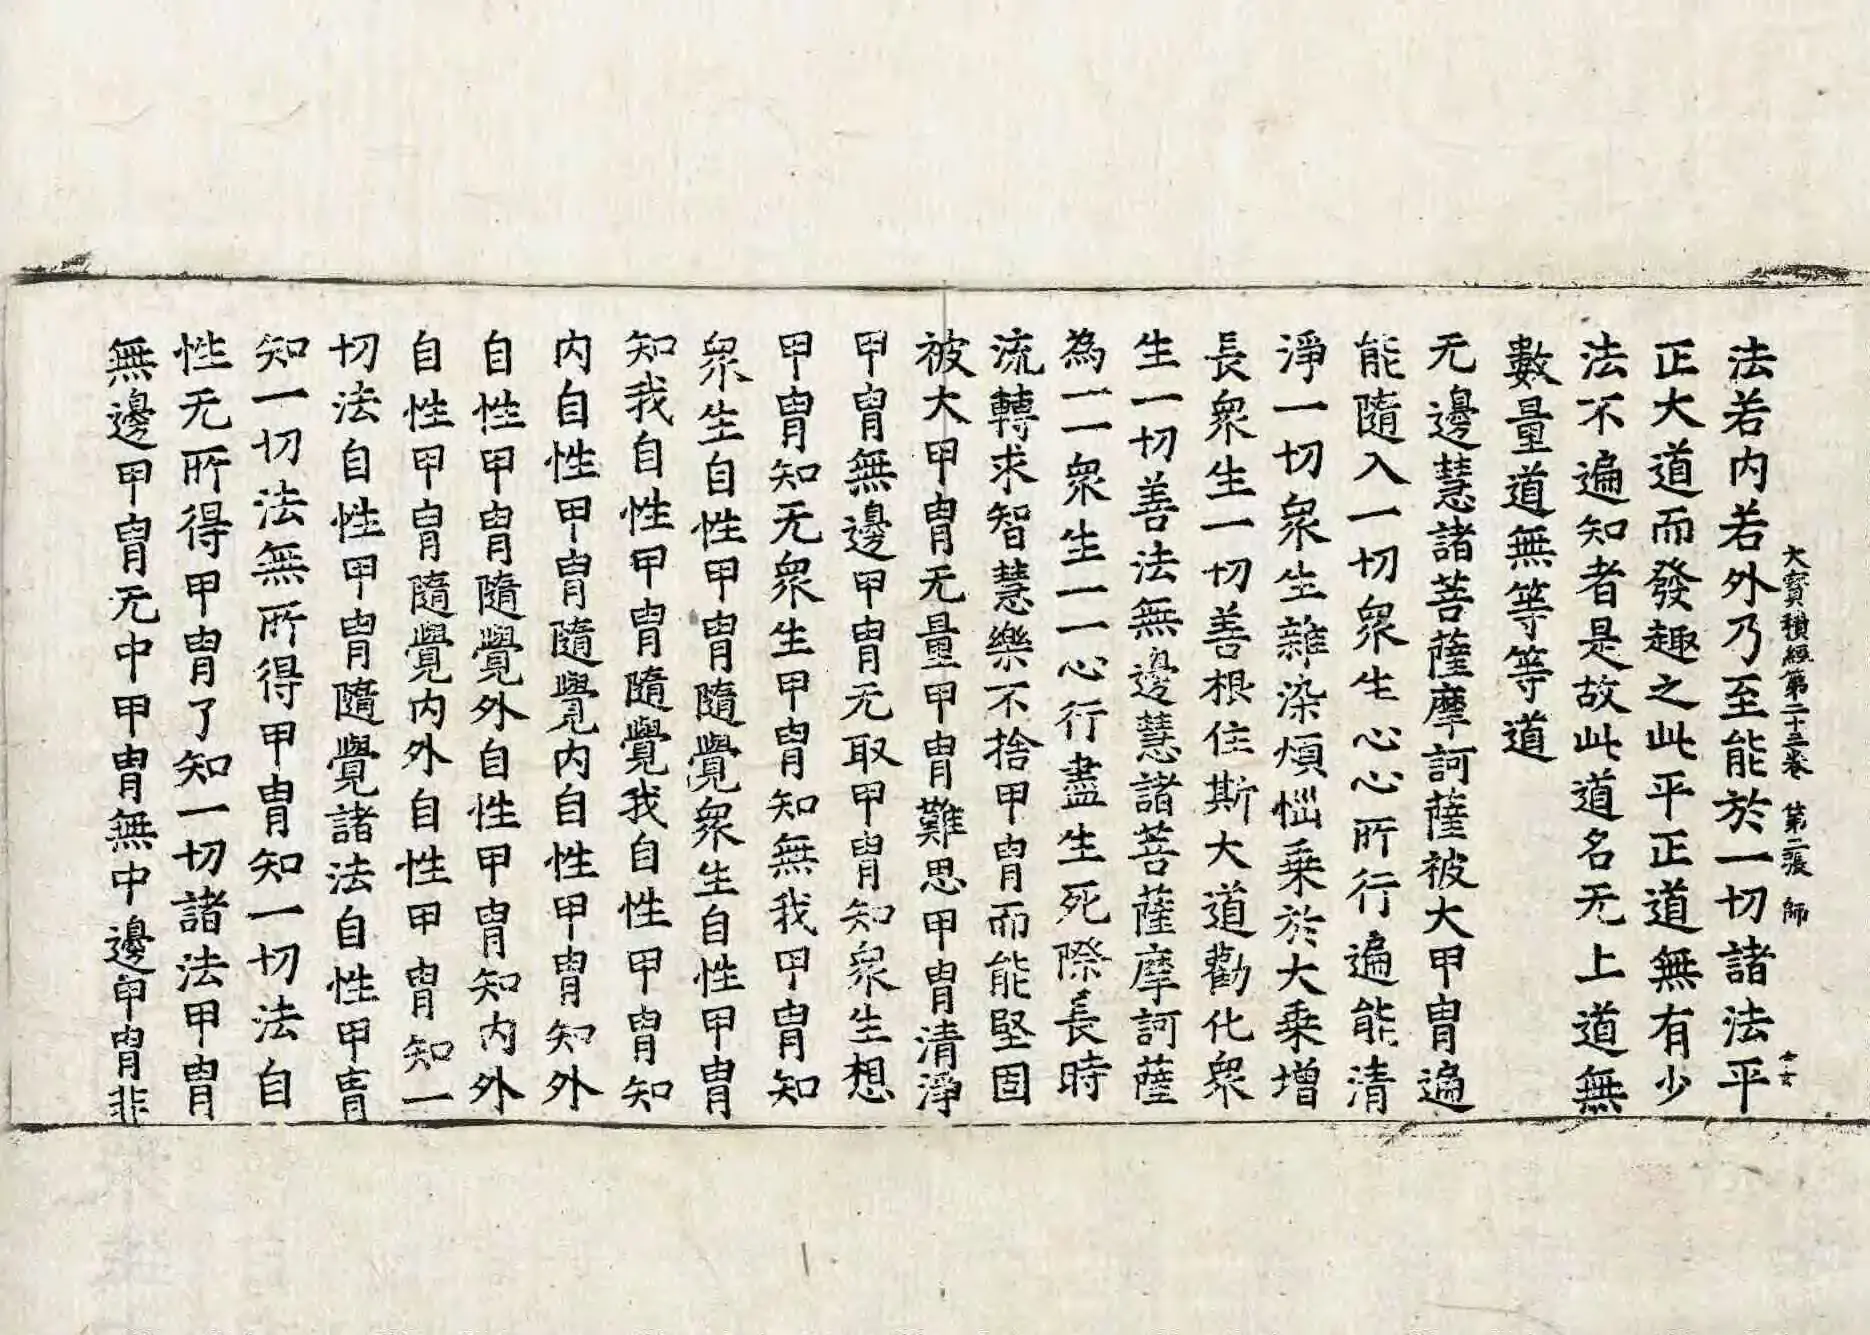 大寶積經第二十三卷 第二張 師
法若内若外乃至能於一切諸法平
正大道而發趣之此平正道無有少
法不遍知者是故此道名无上道無
數量道無等等道
无邊慧諸菩薩摩訶薩被大甲胄遍
能隨入一切衆生心心所行遍能清
淨一切衆生雜染煩惱乗於大乗增
長衆生一切善根住斯大道勸化衆
生一切善法無邊慧諸菩薩摩訶薩
為一一衆生一一心行盡生死際長時
流轉求智慧樂不捨甲胄而能堅固
被大甲胄无量甲胄難思甲胄清淨
甲胄無邊甲胄无取甲胄知衆生想
甲胄知无衆生甲胄知無我甲胄知
衆生自性甲胄隨覺衆生自性甲胄
知我自性甲胄隨覺我自性甲胄知
内自性甲胄隨覺内自性甲胄知外
自性甲胄隨覺外自性甲胄知内外
自性甲胄隨覺内外自性甲胄知一
切法自性甲胄隨覺諸法自性甲胄
知一切法無所得甲胄知一切法自
性无所得甲胄了知一切諸法甲胄
無邊甲胄无中甲胄無中邊甲胄非